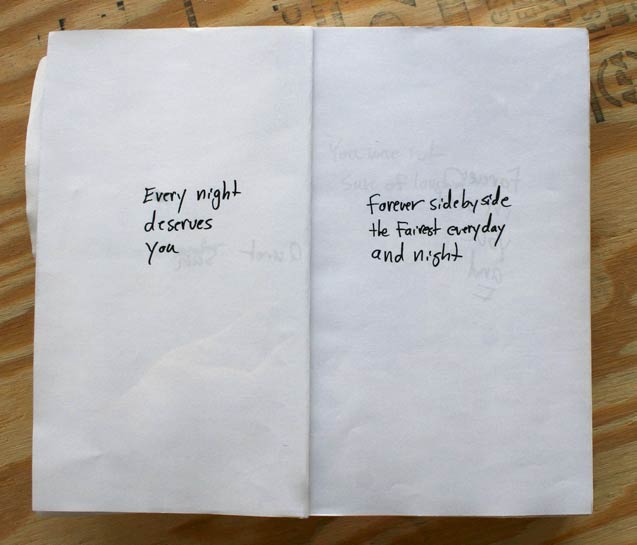 Every night
deserves
you
Forever side by side
the Fairest everyday
and night